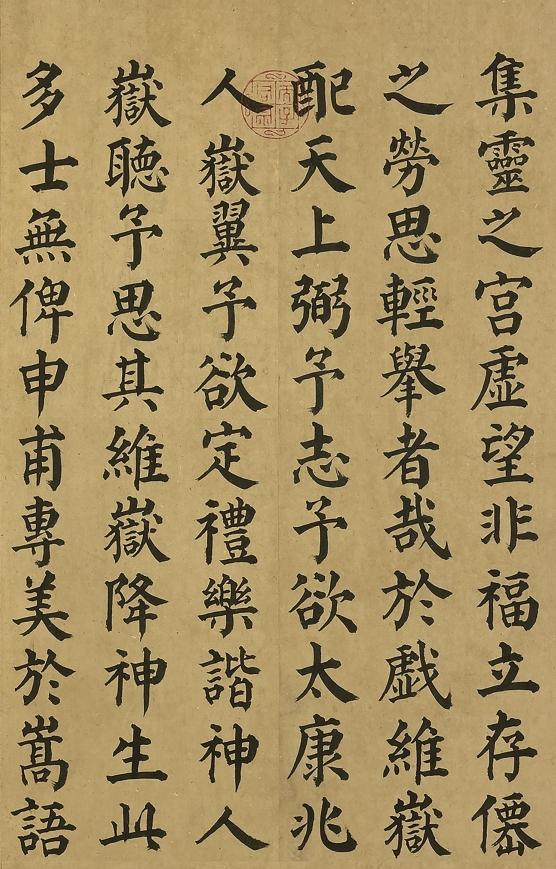 集靈之宮虛望非福立存僊
之勞思輕舉者哉於戲維嶽
配天上弼予志予欲太康兆
人嶽翼予欲定禮樂諧神人
嶽聽予思其維嶽降神生此
多士無俾申甫專美於嵩語